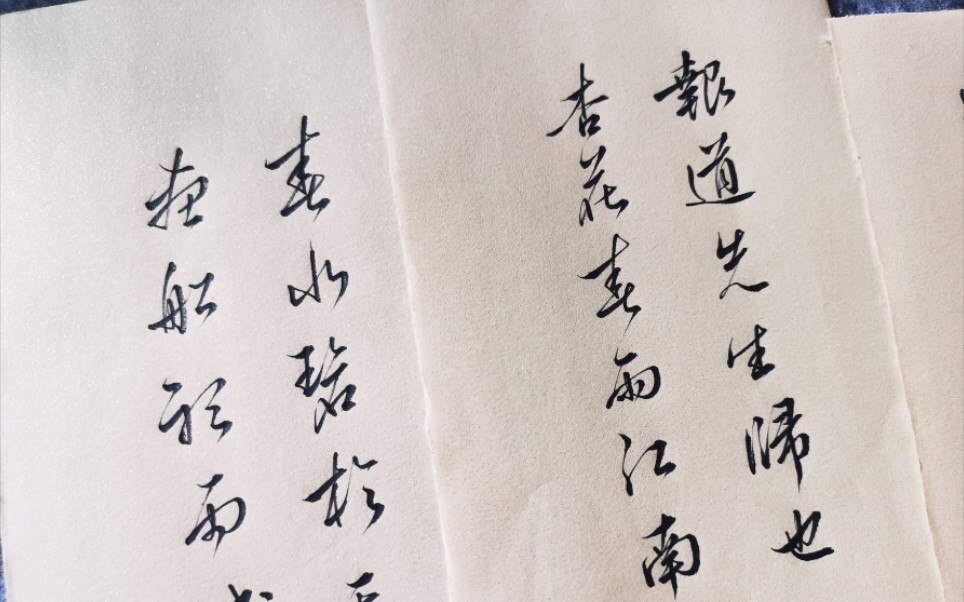 報道先生歸也
杏花春雨江南
春水碧於
畫船聽雨